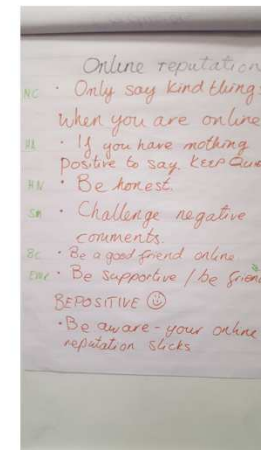 Online reputation
NC · Only say kind things
when you are online
· If you have nothing
positive to say, KEEP QUI
HN · Be honest.
SM · Challenge negative
comments.
BC · Be a good friend online
· Be supportive / be frien
BEPOSITIVE ☺
· Be aware - your online
reputation sticks